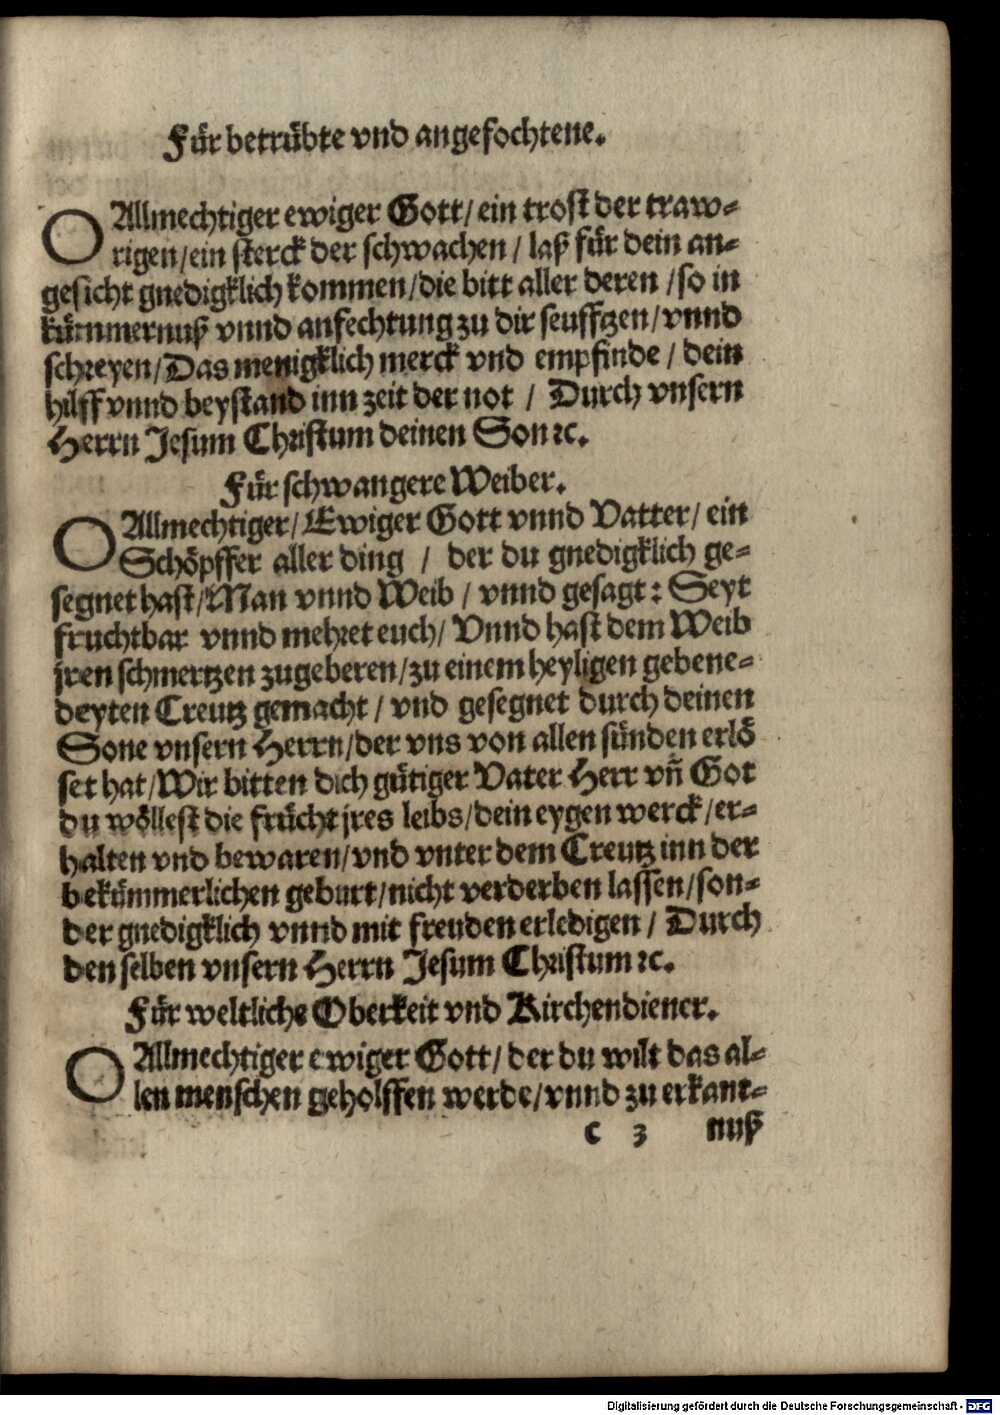 Für betrübte vnd angefochtene.
O Allmechtiger ewiger Gott/ ein trost der traw-
rigen/ ein sterck der schwachen/ laß für dein an-
gesicht gnedigklich kommen/ die bitt aller deren/ so in
kümmernuß vnnd anfechtung zu dir seufftzen/ vnnd
schreyen/ Das menigklich merck vnd empfinde/ dein
hilff vnnd beystand inn zeit der not/ Durch vnsern
Herrn Jesum Christum deinen Son ꝛc.
Für schwangere Weiber.
O Allmechtiger/ Ewiger Gott vnnd Vatter/ ein
Schöpffer aller ding/ der du gnedigklich ge-
segnet hast/ Man vnnd Weib/ vnnd gesagt: Seyt
fruchtbar vnnd mehret euch/ Vnnd hast dem Weib
jren schmertzen zugeberen/ zu einem heyligen gebene-
deyten Creutz gemacht/ vnd gesegnet durch deinen
Sone vnsern Herrn/ der vns von allen sünden erlö
set hat/ Wir bitten dich gütiger Vater Herr vñ Got
du wöllest die frücht jres leibs/ dein eygen werck/ er-
halten vnd bewaren/ vnd vnter dem Creutz inn der
bekümmerlichen geburt/ nicht verderben lassen/ son-
der gnedigklich vnnd mit freuden erledigen/ Durch
den selben vnsern Herrn Jesum Christum ꝛc.
Für weltliche Oberkeit vnd Kirchendiener.
O Allmechtiger ewiger Gott/ der du wilt das al-
len menschen geholffen werde/ vnnd zu erkant-
c 3 nuß
Digitalisierung gefördert durch die Deutsche Forschungsgemeinschaft - DFG